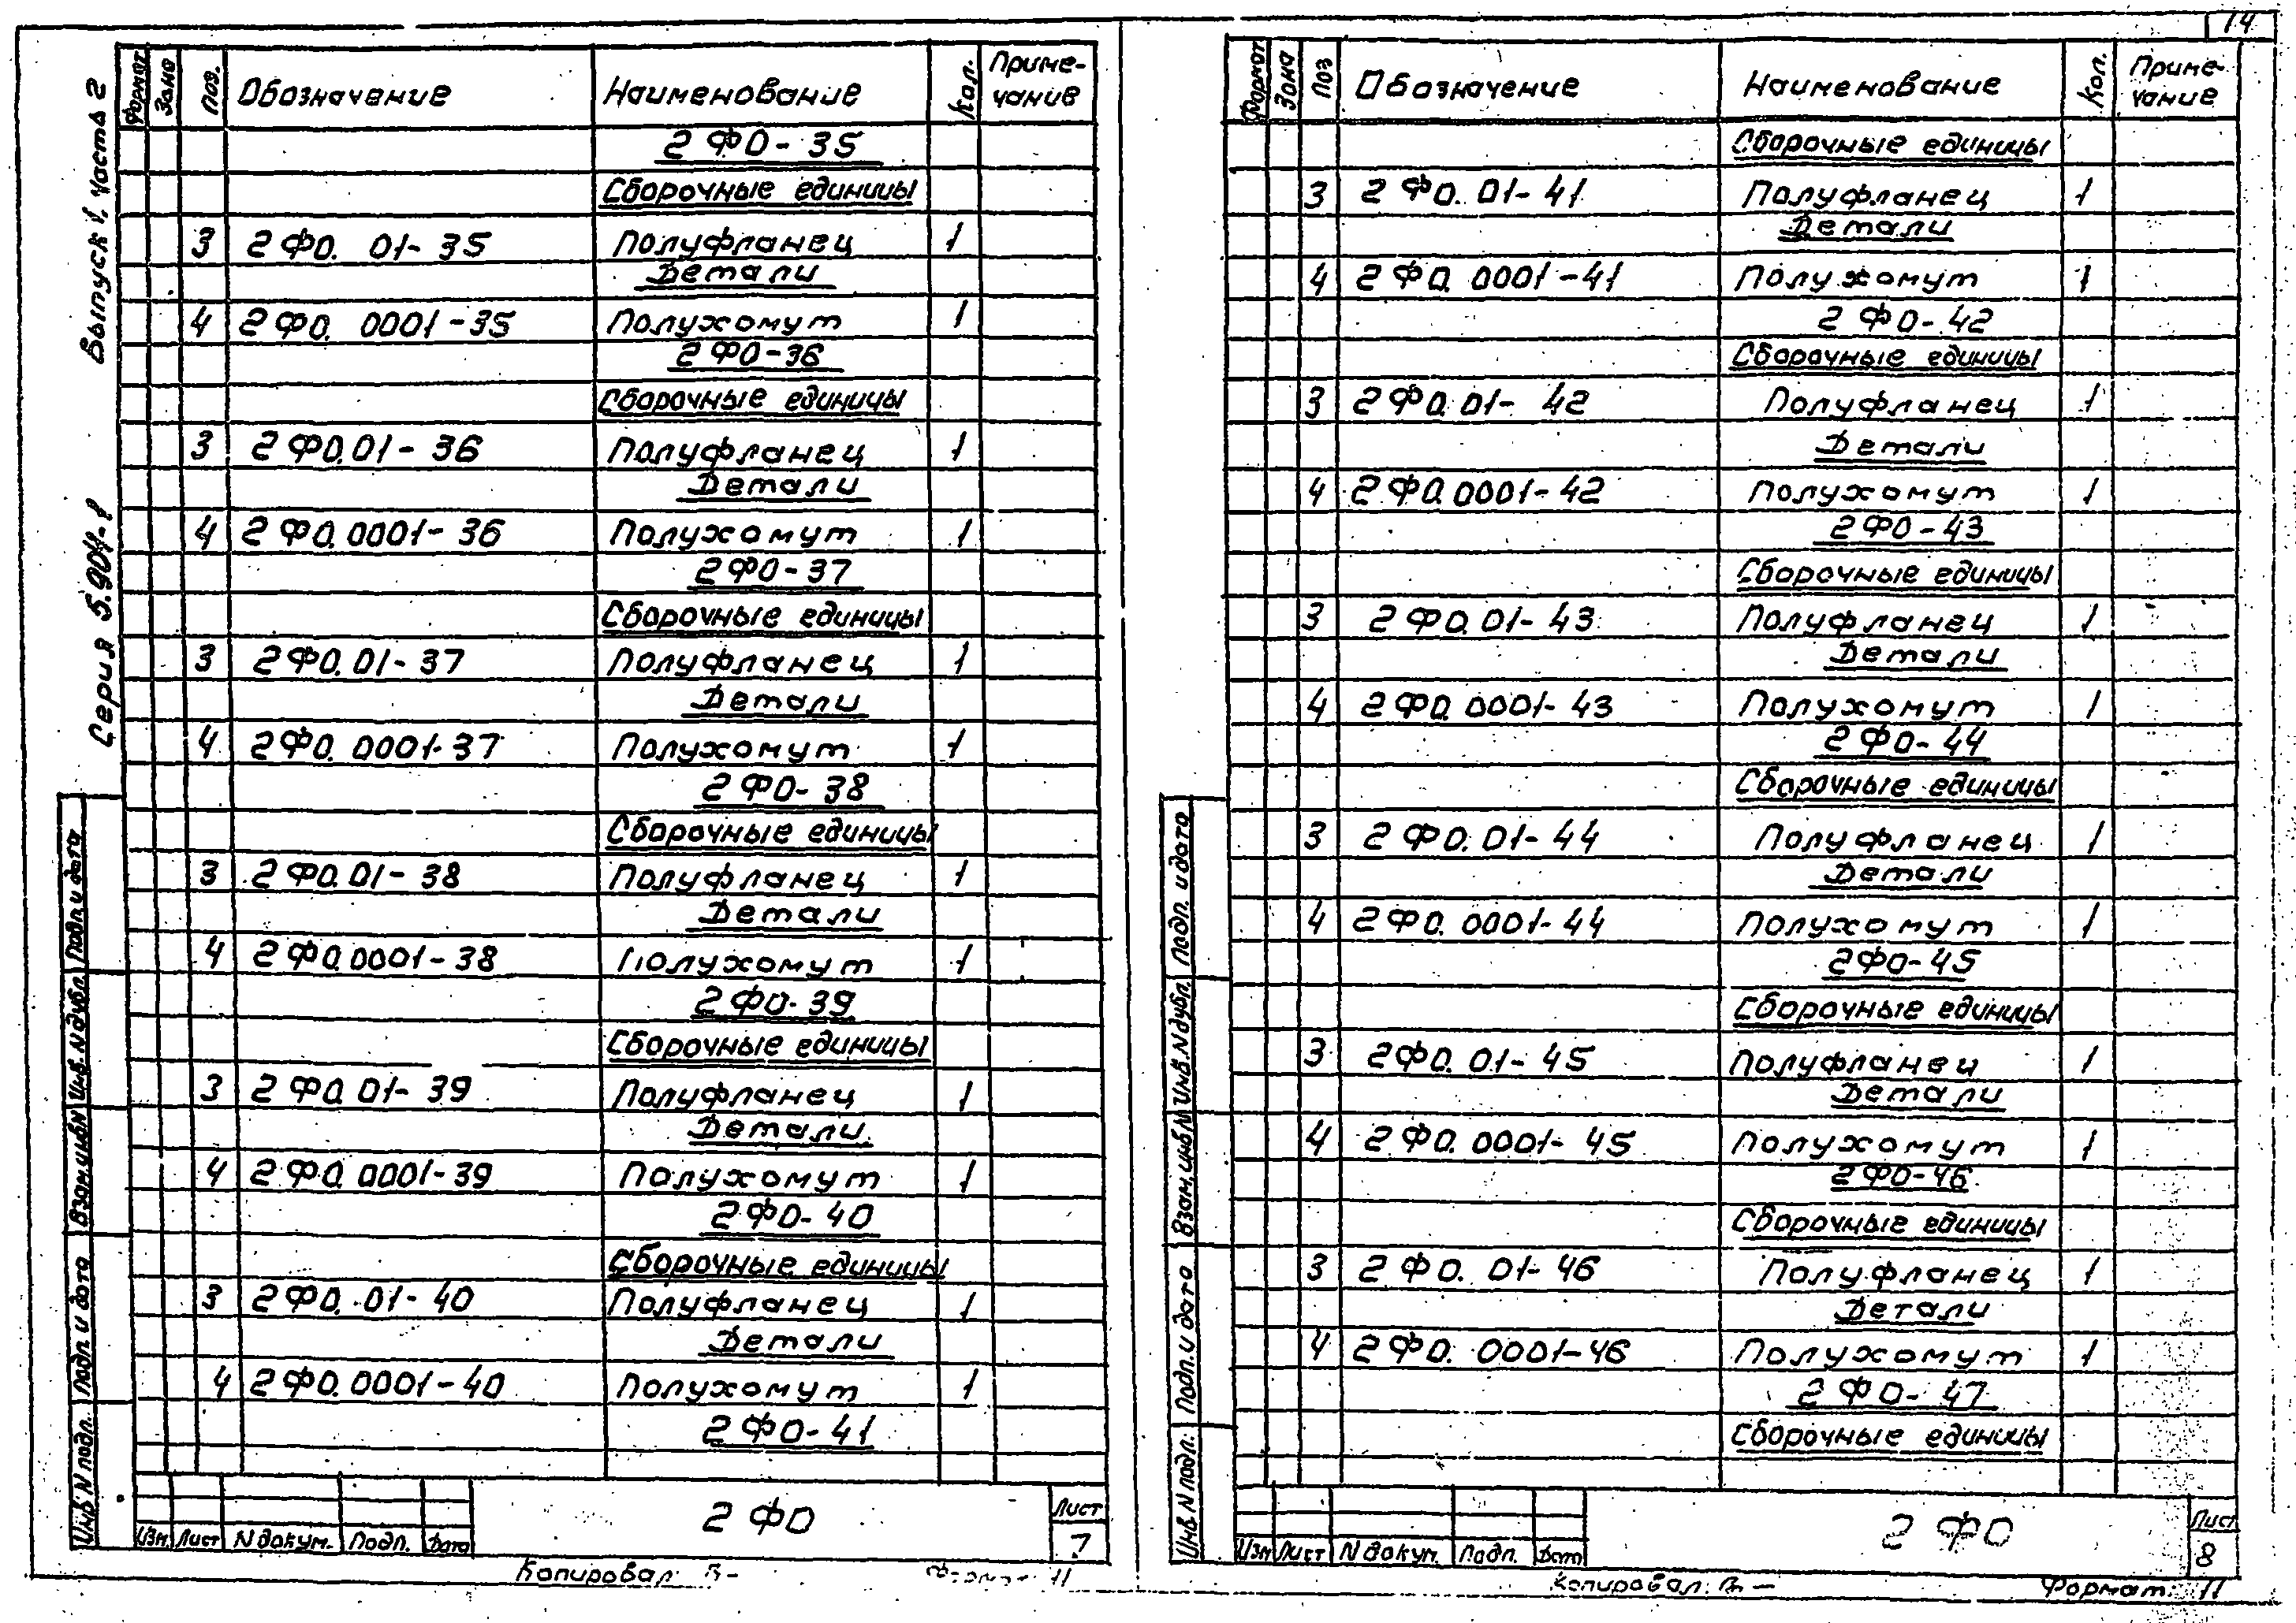 14
Серия 5.904-1 Выпуск 1, часть 2
Формат Зона Поз. Обозначение Наименование Кол. Примечание
2ФО-35
Сборочные единицы
3 2ФО. 01-35 Полуфланец 1
Детали
4 2ФО. 0001-35 Полухомут 1
2ФО-36
Сборочные единицы
3 2ФО.01-36 Полуфланец 1
Детали
4 2ФО.0001-36 Полухомут 1
2ФО-37
Сборочные единицы
3 2ФО.01-37 Полуфланец 1
Детали
4 2ФО.0001-37 Полухомут 1
2ФО-38
Сборочные единицы
3 2ФО.01-38 Полуфланец 1
Детали
4 2ФО.0001-38 Полухомут 1
2ФО-39
Сборочные единицы
3 2ФО.01-39 Полуфланец 1
Детали
4 2ФО.0001-39 Полухомут 1
2ФО-40
Сборочные единицы
3 2ФО.01-40 Полуфланец 1
Детали
4 2ФО.0001-40 Полухомут 1
2ФО-41
Инв. N подл. Подп. и дата Взам. инв N Инв. N дубл. Подп. и дата
Изм. Лист N докум. Подп. Дата
2ФО
Лист
7
Копировал:
Формат 11
Формат Зона Поз Обозначение Наименование Кол. Примечание
Сборочные единицы
3 2ФО. 01-41 Полуфланец 1
Детали
4 2ФО. 0001-41 Полухомут 1
2ФО-42
Сборочные единицы
3 2ФО.01-42 Полуфланец 1
Детали
4 2ФО.0001-42 Полухомут 1
2ФО-43
Сборочные единицы
3 2ФО.01-43 Полуфланец 1
Детали
4 2ФО.0001-43 Полухомут 1
2ФО-44
Сборочные единицы
3 2ФО.01-44 Полуфланец 1
Детали
4 2ФО.0001-44 Полухомут 1
2ФО-45
Сборочные единицы
3 2ФО.01-45 Полуфланец 1
Детали
4 2ФО.0001-45 Полухомут 1
2ФО-46
Сборочные единицы
3 2ФО.01-46 Полуфланец 1
Детали
4 2ФО.0001-46 Полухомут 1
2ФО-47
Сборочные единицы
Инв. N подл. Подп. и дата Взам. инв N Инв. N дубл. Подп. и дата
Изм Лист N докум. Подп. Дата
2ФО
Лист
8
Копировал:
Формат 11